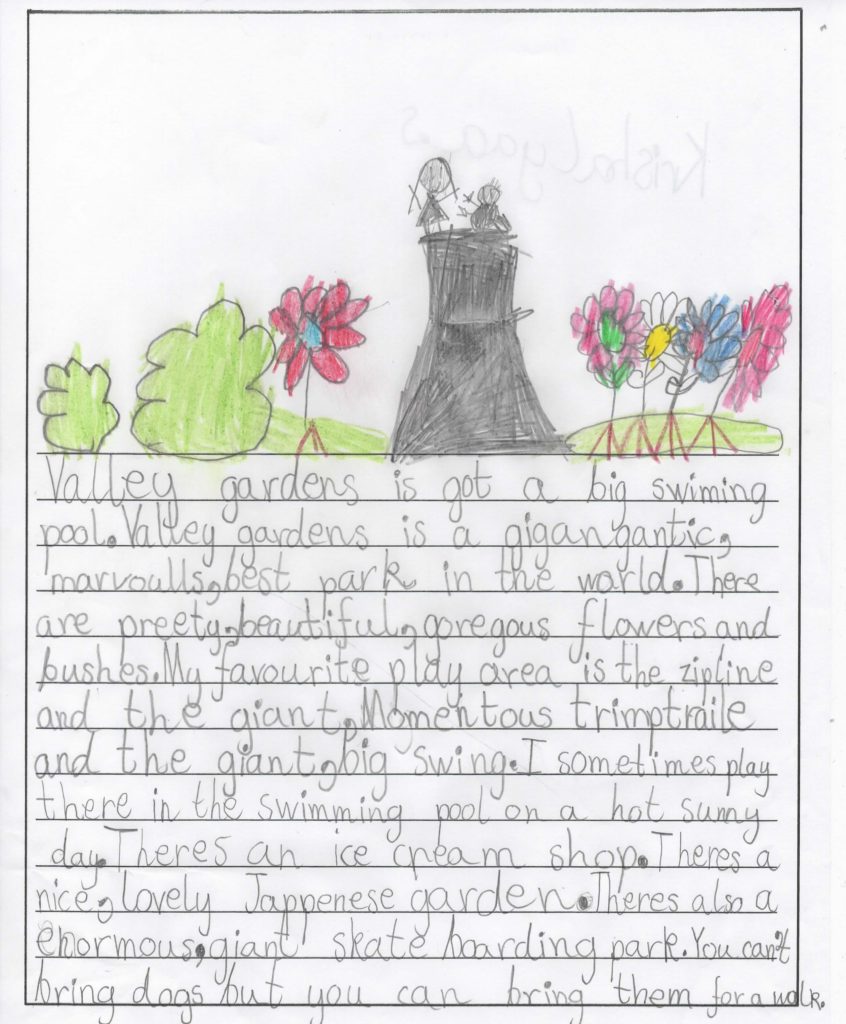 Valley gardens is got a big swiming
pool. Valley gardens is a gigangantic,
marvoulls, best park in the world. There
are preety, beautiful, goregous flowers and
bushes. My favourite play area is the zipline
and the giant, Momentous trimptraile
and the giant, big swing. I sometimes play
there in the swimming pool on a hot sunny
day. Theres an ice cream shop. Theres a
nice, lovely Jappenese garden. Theres also a
enormous, giant skate boarding park. You can't
bring dogs but you can bring them for a walk.